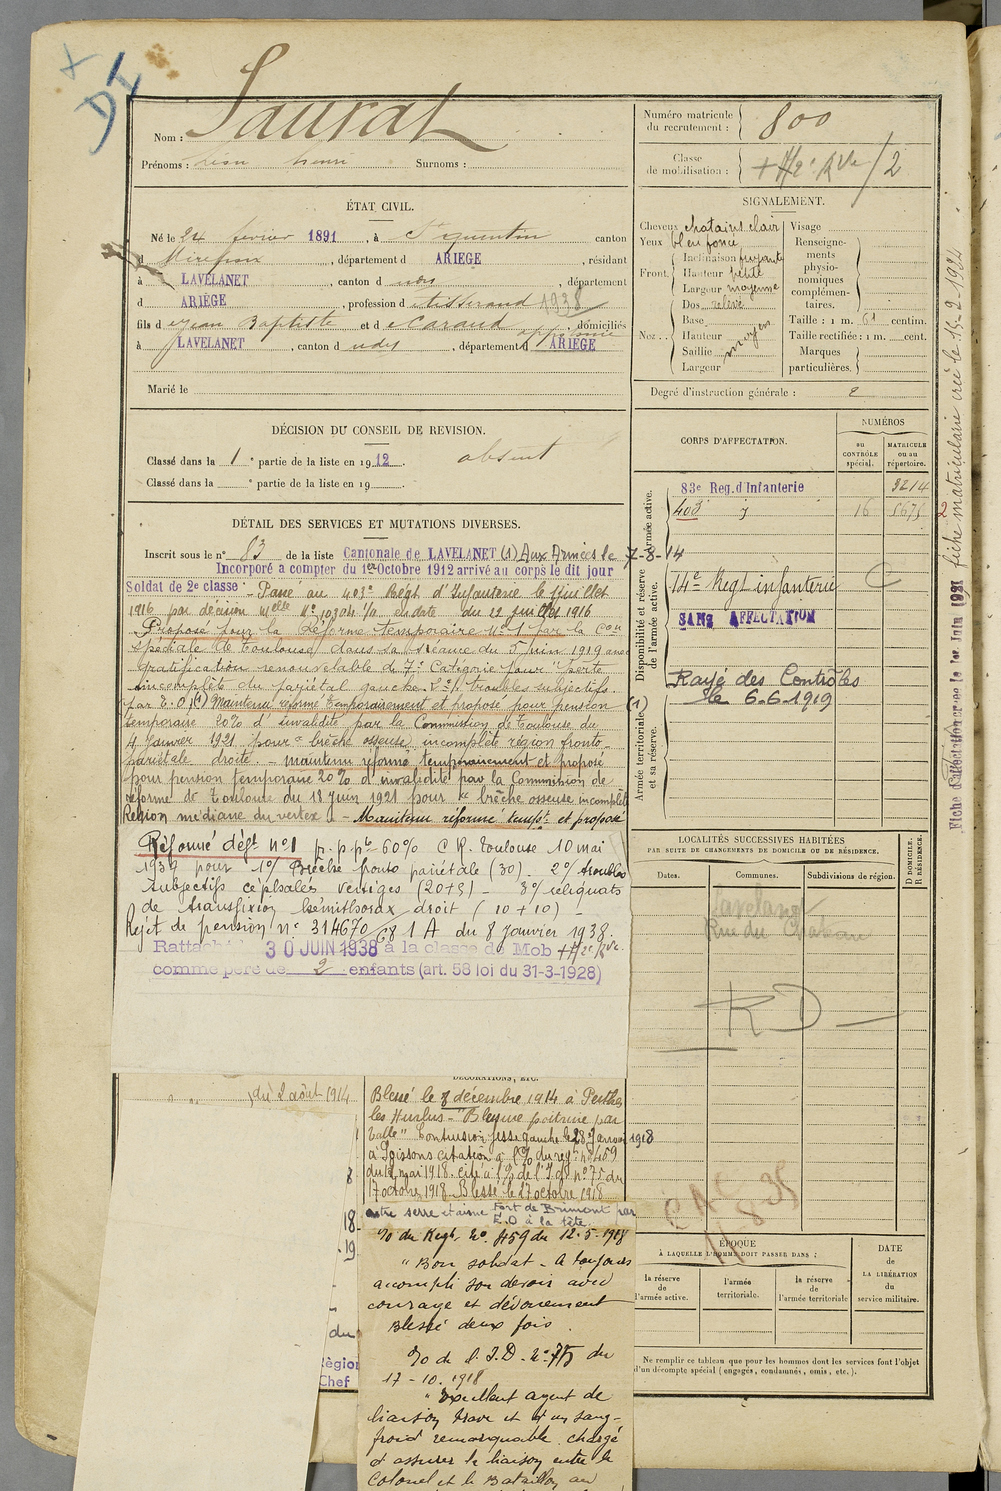 DI
Nom : Saurat
Prénoms : Léon Henri Surnoms :
Numéro matricule du recrutement : 800
Classe de mobilisation : /2
ÉTAT CIVIL.
Né le 24 février 1891, à St quentin canton
d Mirepoix, département d ARIEGE, résidant
à LAVELANET, canton d udit, département
d ARIÈGE, profession d Tisserand 1938
fils d Jean Baptiste et d Caraud, domiciliés
à LAVELANET, canton d udit, département d ARIÈGE
Marié le
SIGNALEMENT.
Cheveux chatains clair
Yeux bleu foncé
Front. Inclinaison fuyante
Hauteur petite
Largeur moyenne
Nez . . Dos relevé
Base
Hauteur moyen
Saillie
Largeur
Visage
Renseignements physionomiques complémentaires.
Taille : 1 m. 61 centim.
Taille rectifiée : 1 m. cent.
Marques particulières.
Degré d'instruction générale : 2
DÉCISION DU CONSEIL DE REVISION.
Classé dans la 1e partie de la liste en 1912. absent
Classé dans la e partie de la liste en 19
DÉTAIL DES SERVICES ET MUTATIONS DIVERSES.
Inscrit sous le n° 83 de la liste Cantonale de LAVELANET (1) Aux Armées le 7-8-14
Incorporé a compter du 1er Octobre 1912 arrivé au corps le dit jour
Soldat de 2e classe - Passé au 403e Régt d'Infanterie le juillet
1916 par décision Melle No 10304 1/0 en date du 12 juillet 1916
- Proposé pour la Réforme temporaire No 1 par la Con
spéciale de Toulouse dans sa séance du 5 juin 1919 avec
Gratification renouvelable de 7e Catégorie Pour "perte
incomplète du pariétal gauche. 2e/ troubles subjectifs.
par E.O. (1) Maintenu réformé Temporairement et proposé pour pension
temporaire 20% d'invalidité par la Commission de Toulouse du
4 Janvier 1921 pour "brêche osseuse incomplète région fronto-
pariétale droite. - maintenu réformé temporairement et Proposé
pour pension temporaire 20% d'invalidité par la Commission de
réforme de Toulouse du 18 juin 1921 pour brêche osseuse incomplète
Région médiane du vertex - Maintenu réforme tempt et proposé
Réformé déft no 1 p. p. pte 60% C R. Toulouse 10 mai
1939 pour 1°/ Brèche fronto pariétale (30). 2°/ troubles
subjectifs céphalés vertiges (20+5) - 3°/ reliquats
de transfixion hémithorax droit (10+10) -
Rejet de pension n° 314670 C8 1 A du 8 janvier 1938.
Rattaché 30 JUIN 1938 à la classe de Mob
comme père de 2 enfants (art. 58 loi du 31-3-1928)
CORPS D'AFFECTATION.
NUMÉROS
au CONTRÔLE spécial.
MATRICULE ou au répertoire.
Armée active.
83e Reg. d'Infanterie 3214
403 16 5675
Disponibilité et réserve de l'armée active.
14e Regt infanterie C
SANS AFFECTATION
Rayé des Contrôles
le 6-6-1919
(1)
Armée territoriale et sa réserve.
LOCALITÉS SUCCESSIVES HABITÉES
PAR SUITE DE CHANGEMENTS DE DOMICILE OU DE RÉSIDENCE.
Dates. Communes. Subdivisions de région. D DOMICILE. R RÉSIDENCE.
Lavelanet
Rue du Chateau
RD
DÉCORATIONS, ETC.
du 2 août 1914
Blessé le 8 décembre 1914 à Perthes
les Hurlus - "Blessure poitrine par
balle" Contusion fesse gauche le 28 Janvier 1918
à Soissons citation à l'O/ du regt no 459
du 12 mai 1918. cité à l'O/ de l'I.D. no 75 du
17 octobre 1918 Blessé le 17 octobre 1918
Fort de Brimont par
E.O à la tête.
O/ du Regt No 459 du 12-5-1918
"Bon soldat - A toujours
accompli son devoir avec
courage et dévouement
Blessé deux fois.
O/ de l'I.D. No 75 du
17-10-1918
"Excellent agent de
liaison brave et d'un sang-
froid remarquable. chargé
d'assurer la liaison entre le
Colonel et le Bataillon au
18
19
du
Région
Chef
11-8-35
ÉPOQUE
À LAQUELLE L'HOMME DOIT PASSER DANS :
la réserve de l'armée active.
l'armée territoriale.
la réserve de l'armée territoriale
DATE de LA LIBÉRATION du service militaire.
Ne remplir ce tableau que pour les hommes dont les services font l'objet
d'un décompte spécial (engagés, condamnés, omis, etc.).
fiche matriculaire crée le 15-2-1934
Fiche d'affectation crée le 1er Juin 1931